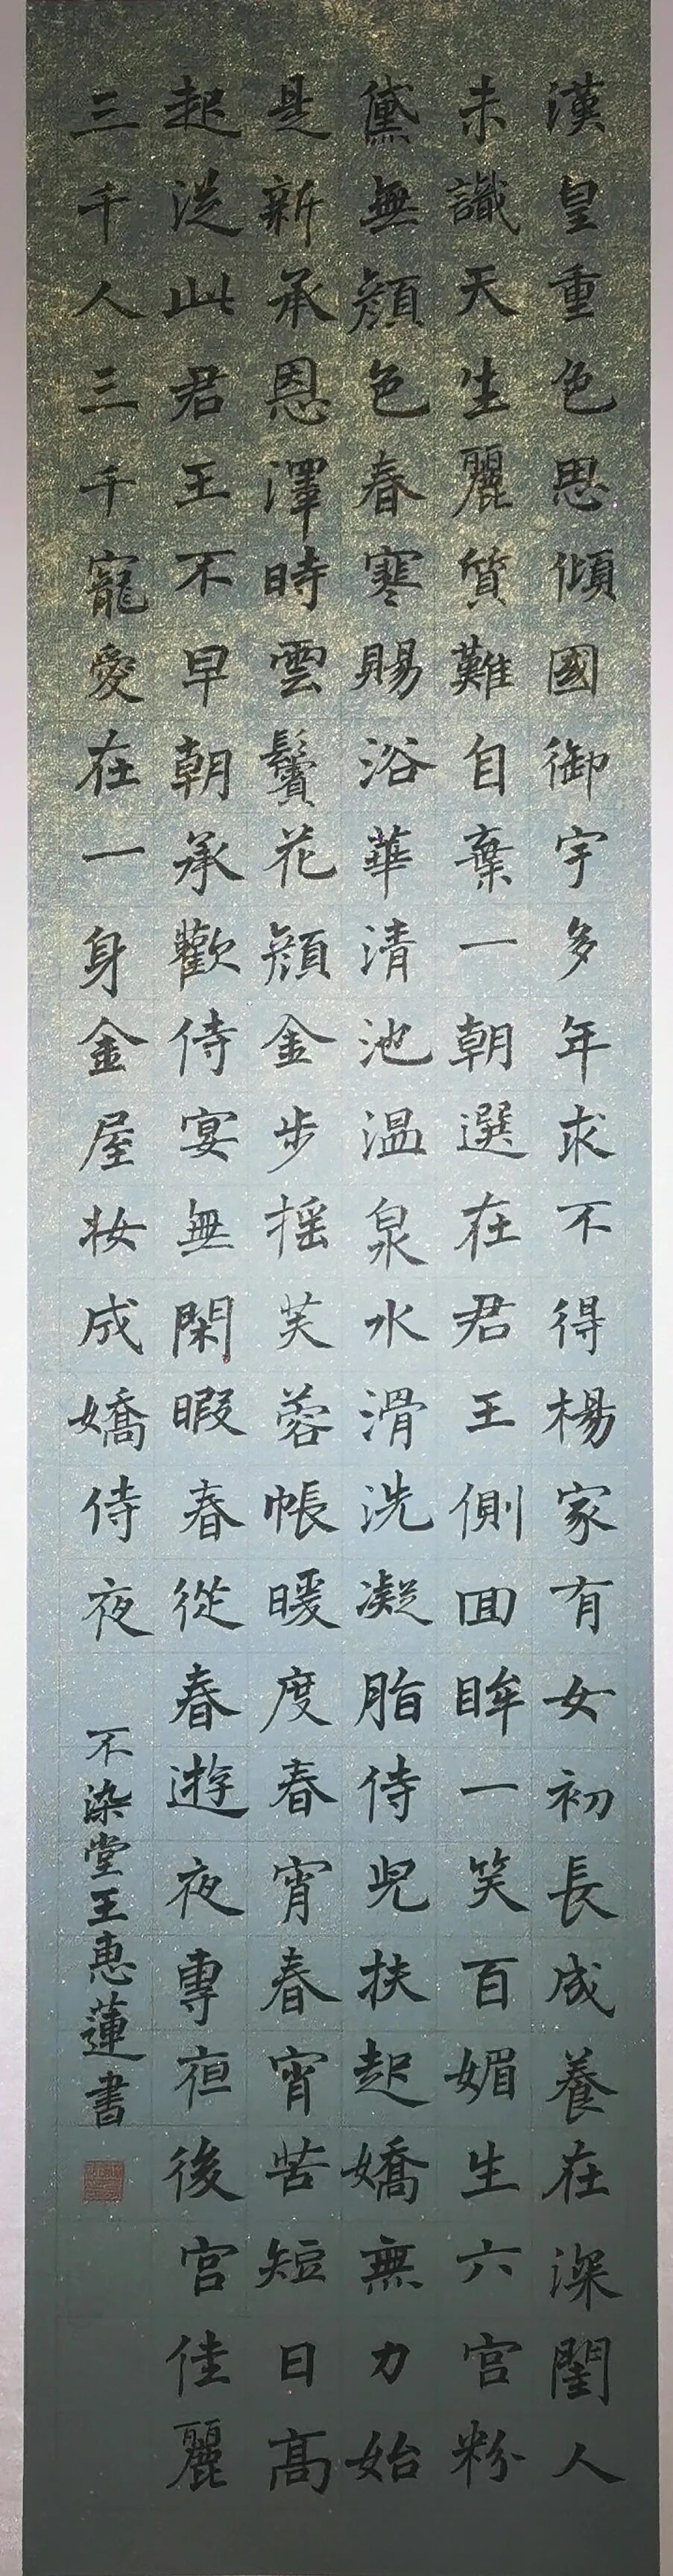 漢皇重色思傾國御宇多年求不得楊家有女初長成養在深閨人
未識天生麗質難自棄一朝選在君王側回眸一笑百媚生六宮粉
黛無顏色春寒賜浴華清池温泉水滑洗凝脂侍兒扶起嬌無力始
是新承恩澤時雲鬢花顏金步摇芙蓉帳暖度春宵春宵苦短日高
起從此君王不早朝承歡侍宴無閑暇春從春遊夜專夜後宮佳麗
三千人三千寵愛在一身金屋妝成嬌侍夜
不染堂王惠蓮書